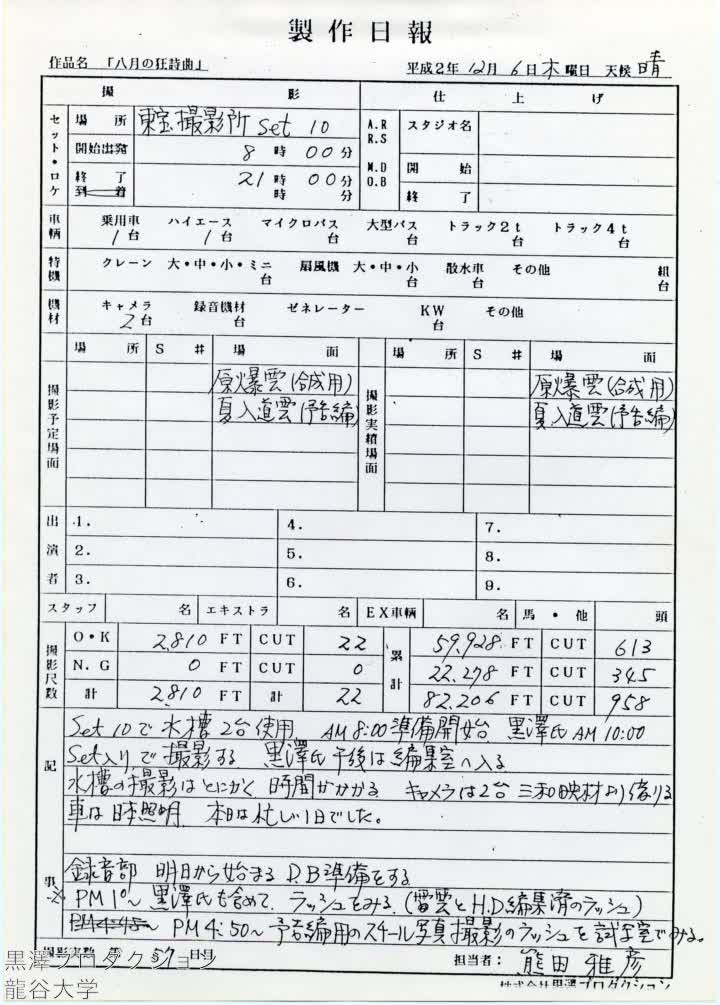 製作日報
作品名 「八月の狂詩曲」 平成2年 12月 6日 木曜日 天候 晴
撮影 仕上げ
セット・ロケ 場所 東宝撮影所 Set 10 A.R R.S スタジオ名
開始出発 8時 00分 M.D O.B 開始
終了 21時 00分 終了
到着 時 分
車輌 乗用車 1台 ハイエース 1台 マイクロバス 台 大型バス 台 トラック2t 台 トラック4t 台
特機 クレーン 大・中・小・ミニ 台 扇風機 大・中・小 台 散水車 台 その他 組 台
機材 キャメラ 2台 録音機材 台 ゼネレーター KW 台 その他
場所 S# 場面 場所 S# 場面
撮影予定場面 原爆雲(合成用) 撮影実績場面 原爆雲(合成用)
夏入道雲(予告編) 夏入道雲(予告編)
出演者 1. 4. 7.
2. 5. 8.
3. 6. 9.
スタッフ 名 エキストラ 名 EX車輌 名 馬・他 頭
撮影尺数 O・K 2,810 FT CUT 22 累計 59,928 FT CUT 613
N.G 0 FT CUT 0 22,278 FT CUT 345
計 2,810 FT 計 22 82,206 FT CUT 958
記事
Set 10で水槽2台使用 AM 8:00 準備開始 黒澤氏 AM 10:00
Set入りで撮影する 黒澤氏午後は編集室へ入る
水槽の撮影はとにかく時間がかかる キャメラは2台 三和映材より借りる
車は日本照明 本日は忙しい1日でした。
録音部 明日から始まる D.B準備をする
PM 1°~ 黒澤氏も含めて、ラッシュをみる。(雷雲とH.D編集済のラッシュ)
PM 4:50~ 予告編用のスチール写真撮影のラッシュを試写室でみる。
撮影実数 第 57日目 担当者: 熊田雅彦
株式会社黒澤プロダクション
黒澤プロダクション
龍谷大学